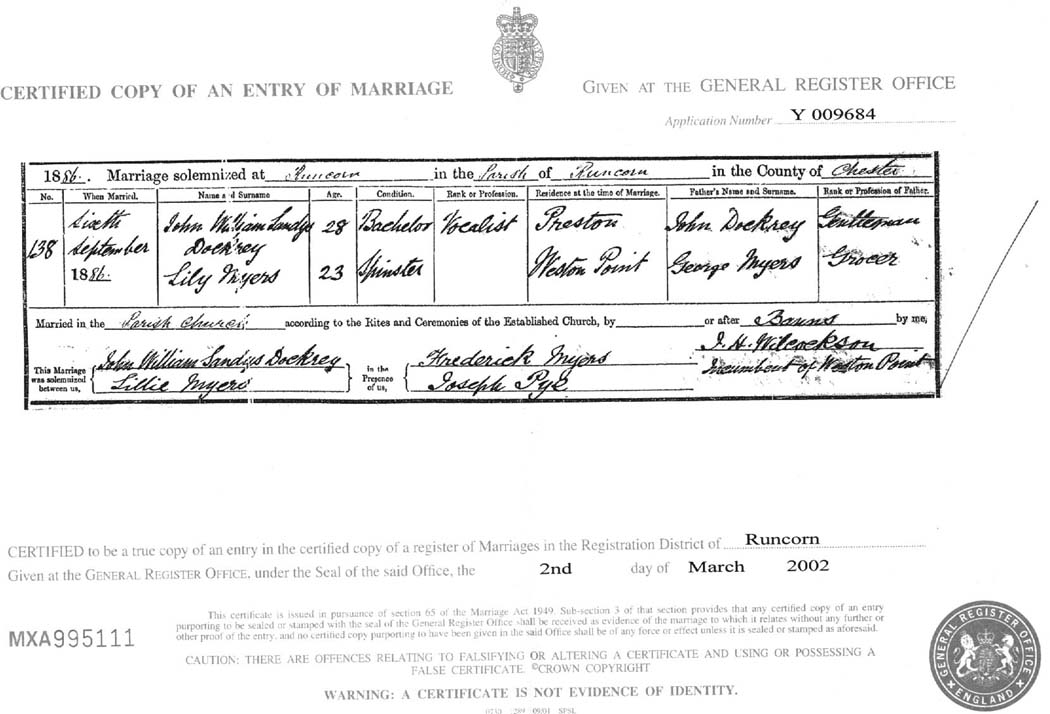 CERTIFIED COPY OF AN ENTRY OF MARRIAGE
GIVEN AT THE GENERAL REGISTER OFFICE
Application Number Y 009684
1886. Marriage solemnized at Runcorn in the Parish of Runcorn in the County of Chester
No. When Married. Name and Surname Age. Condition. Rank or Profession. Residence at the time of Marriage. Father's Name and Surname. Rank or Profession of Father.
138 Sixth September 1886. John William Sandys Dockrey 28 Bachelor Vocalist Preston John Dockrey Gentleman
Lily Myers 23 Spinster Weston Point George Myers Grocer
Married in the Parish Church according to the Rites and Ceremonies of the Established Church, by or after Banns by me,
This Marriage was solemnized between us, John William Sandys Dockrey in the Presence of us, Frederick Myers J. H. Wilcockson
Lillie Myers Joseph Pye Incumbent of Weston Point
CERTIFIED to be a true copy of an entry in the certified copy of a register of Marriages in the Registration District of Runcorn
Given at the GENERAL REGISTER OFFICE, under the Seal of the said Office, the 2nd day of March 2002
This certificate is issued in pursuance of section 65 of the Marriage Act 1949. Sub-section 3 of that section provides that any certified copy of an entry
purporting to be sealed or stamped with the seal of the General Register Office shall be received as evidence of the marriage to which it relates without any further or
other proof of the entry, and no certified copy purporting to have been given in the said Office shall be of any force or effect unless it is sealed or stamped as aforesaid.
MXA995111
CAUTION: THERE ARE OFFENCES RELATING TO FALSIFYING OR ALTERING A CERTIFICATE AND USING OR POSSESSING A
FALSE CERTIFICATE. ©CROWN COPYRIGHT
WARNING: A CERTIFICATE IS NOT EVIDENCE OF IDENTITY.
09/01 SPSL
GENERAL REGISTER OFFICE
ENGLAND